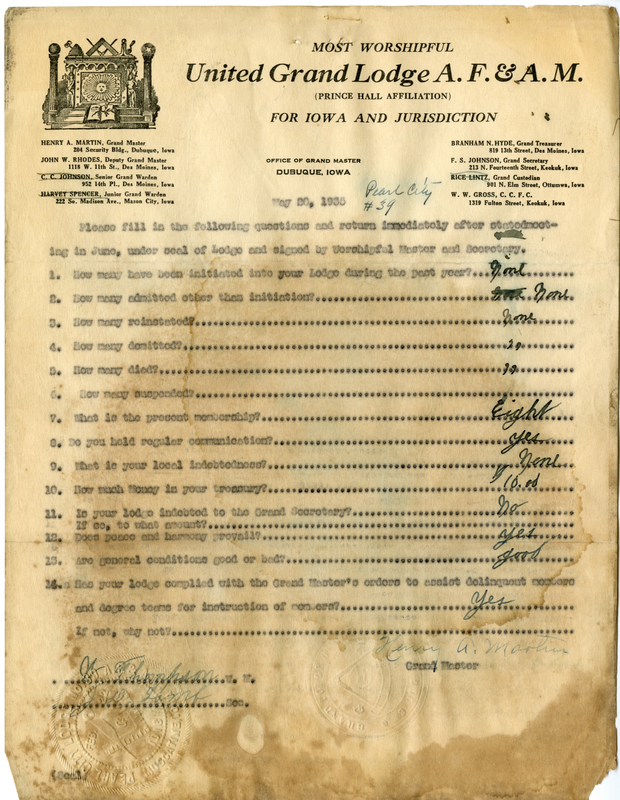 MOST WORSHIPFUL
United Grand Lodge A. F. & A. M.
(PRINCE HALL AFFILIATION)
FOR IOWA AND JURISDICTION
HENRY A. MARTIN, Grand Master
204 Security Bldg., Dubuque, Iowa
JOHN W. RHODES, Deputy Grand Master
1118 W. 11th St., Des Moines, Iowa
C. C. JOHNSON, Senior Grand Warden
952 14th Pl., Des Moines, Iowa
HARVEY SPENCER, Junior Grand Warden
222 So. Madison Ave., Mason City, Iowa
OFFICE OF GRAND MASTER
DUBUQUE, IOWA
BRANHAM N. HYDE, Grand Treasurer
819 13th Street, Des Moines, Iowa
F. S. JOHNSON, Grand Secretary
213 N. Fourteenth Street, Keokuk, Iowa
RICE LINTZ, Grand Custodian
901 N. Elm Street, Ottumwa, Iowa
W. W. GROSS, C. C. F. C.
1319 Fulton Street, Keokuk, Iowa
Pearl City
#39
May 28, 1935
Please fill in the following questions and return immediately after stated meet-
ing in June, under seal of Lodge and signed by Worshipful Master and Secretary.
1. How many have been initiated into your Lodge during the past year? None
2. How many admitted other than initiation? None
3. How many reinstated? None
4. How many demitted?
5. How many died?
6. How many suspended?
7. What is the present membership? Eight
8. Do you hold regular communication? yes
9. What is your local indebtedness? None
10. How much Money in your treasury? $10.00
11. Is your lodge indebted to the Grand Secretary? No
If so, to what amount?
12. Does peace and harmony prevail? yes
13. Are general conditions good or bad? good
14. Has your lodge complied with the Grand Master's orders to assist delinquent members
and degree teams for instruction of members? Yes
If not, why not?
Henry A. Martin
Grand Master
Thomason W. M.
Sec.
(Seal)